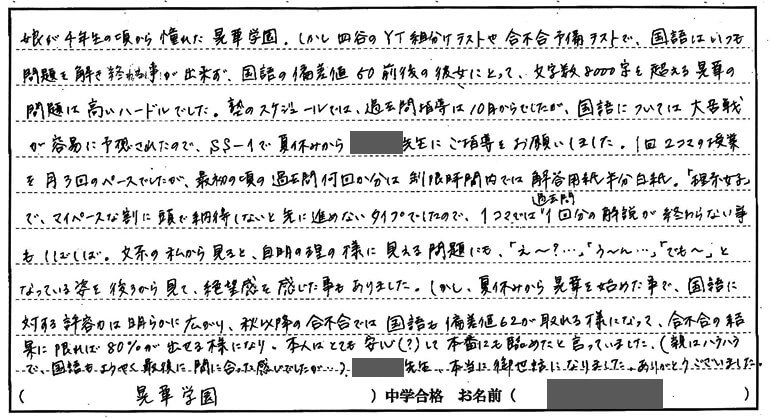 娘が4年生の頃から憧れた晃華学園。しかし四谷のYT組分けテストや合不合予備テストで、国語はいつも
問題を解き終わる事が出来ず、国語の偏差値50前後の彼女にとって、文字数8000字を超える晃華の
問題は高いハードルでした。塾のスケジュールでは、過去問指導は10月からでしたが、国語については大苦戦
が容易に予想されたので、SS-1で夏休みから 先生にご指導をお願いしました。1回2コマの授業
を月3回のペースでしたが、最初の頃の過去問何回か分は制限時間内では解答用紙半分白紙。「理系女子」
で、マイペースな割に頭で納得しないと先に進めないタイプでしたので、1コマでは過去問1回分の解説が終わらない事
もしばしば。文系の私から見ると、自明の理の様に見える問題にも、「え〜?…」「う〜ん…」「でも〜」と
なっている姿を後ろから見て、絶望感を感じた事もありました。しかし、夏休みから晃華を始めた事で、国語に
対する許容力は明らかに広がり、秋以降の合不合では国語も偏差値62が取れる様になって、合不合の結
果に限れば80%が出せる様になり、本人はとても安心(?)して本番にも臨めたと言っていました。(親はハラハラ
で、国語もようやく最後に間に合った感じでしたが…) 先生、本当に御世話になりました。ありがとうございました。
( 晃華学園 )中学合格 お名前(